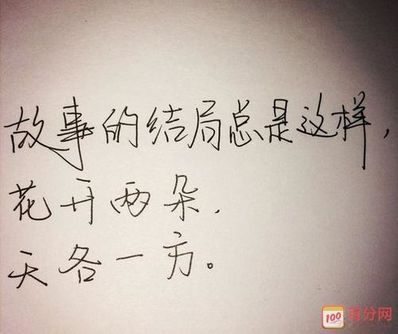 故事的结局总是这样，
花开两朵，
天各一方。
100
百分网